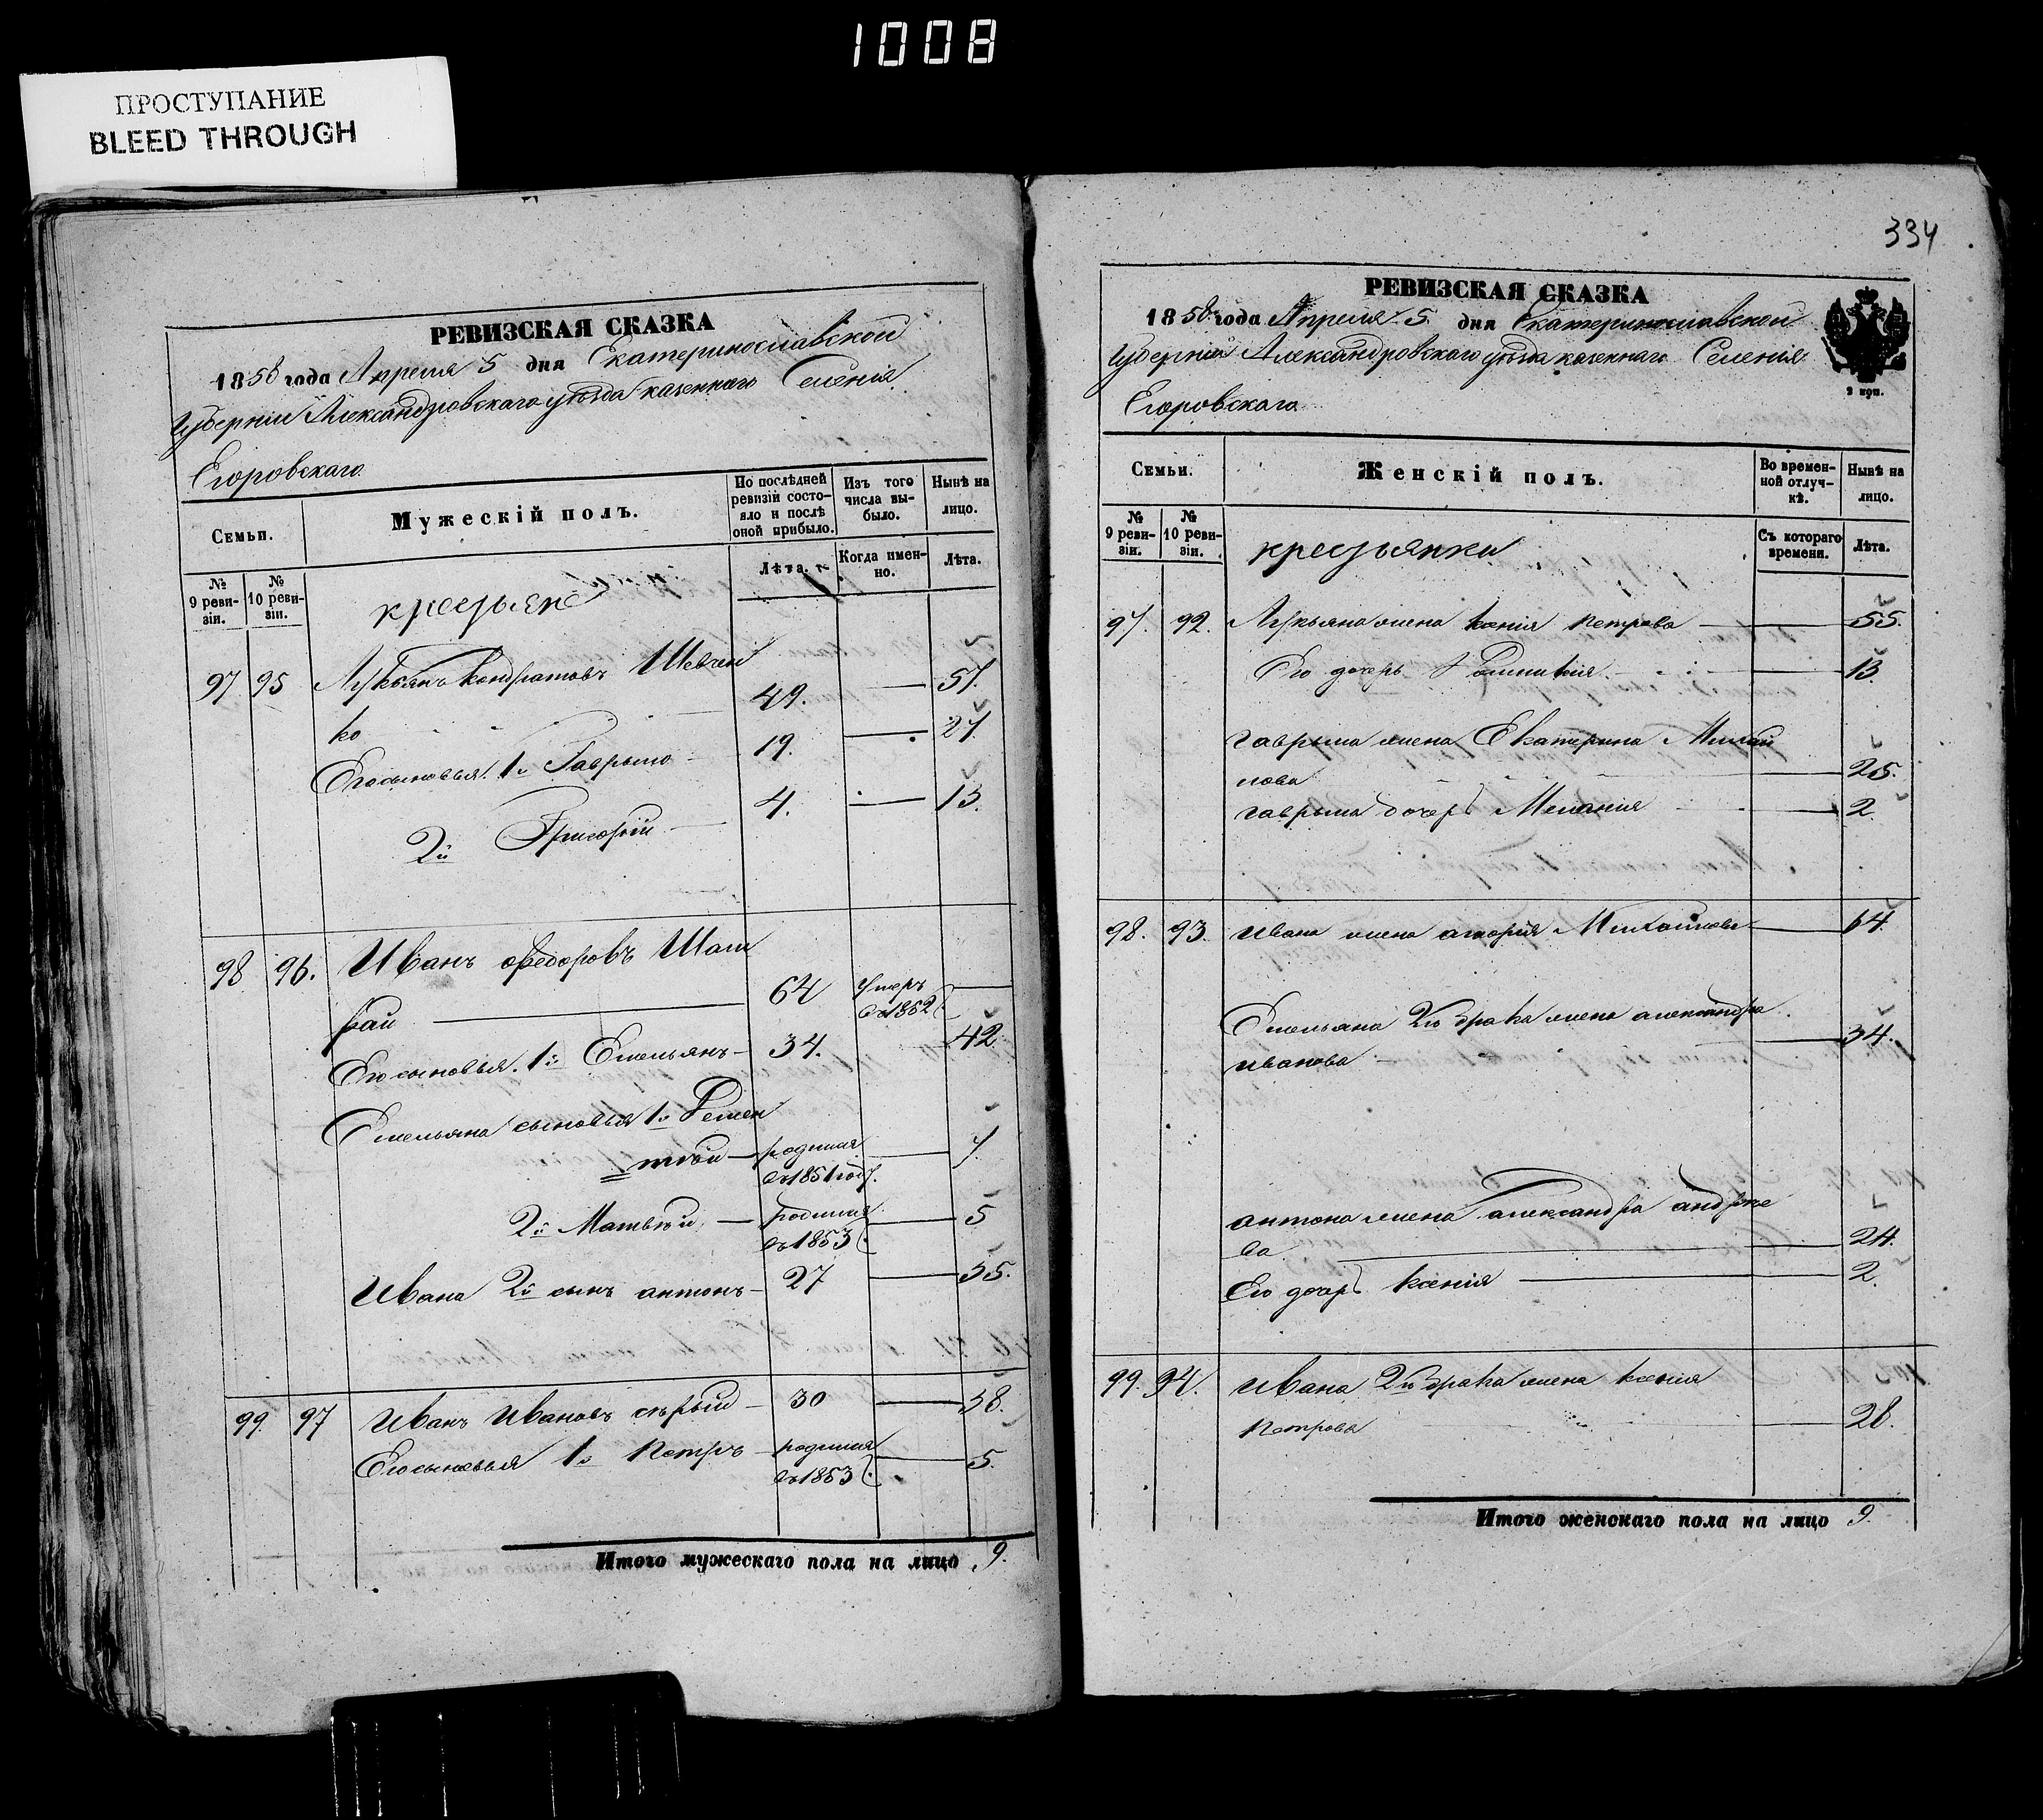 1008
ПРОСТУПАНИЕ
BLEED THROUGH
РЕВИЗСКАЯ СКАЗКА
1858 года Апреля 5 дня Екатеринославской
Губерніи Александровскаго уѣзда казеннаго Селенія
Егоровскаго
Семьи.
Мужескій полъ.
По послѣдней ревизіи состояло и послѣ оной прибыло.
Изъ того числа выбыло.
Нынѣ на лицо.
№ 9 ревизіи.
№ 10 ревизіи.
Лѣта.
Когда именно.
Лѣта.
крестьяне
97 95 Лукьянъ Кондратовъ Шевчен
ко 49. 57.
Его сыновья 1й Гаврыло 19. 27.
2й Григорій 4. 13.
98 96. Иванъ Федоровъ Шап
рай 64 умеръ въ 1852
Его сыновья. 1й Емельянъ 34. 42
Емельяна сыновья 1й
родился въ 1851 году. 7
2й Матвѣй родился въ 1853 5
Ивана 2й сынъ антонъ 27 35.
99. 97 Иванъ Ивановъ сѣрый 30 38.
Его сыновья 1й Петръ родился въ 1853 5.
Итого мужескаго пола на лицо 9.
334
РЕВИЗСКАЯ СКАЗКА
1858 года Апреля 5 дня Екатеринославской
Губерніи Александровскаго уѣзда казеннаго Селенія
Егоровскаго
2 коп.
Семьи.
Женскій полъ.
Во временной отлучкѣ.
Нынѣ на лицо.
№ 9 ревизіи.
№ 10 ревизіи.
Съ котораго времени.
Лѣта.
крестьянки
97. 92. Лукьяна жена Ксенія Петрова 55.
Его дочерь 13.
Гаврыла жена Екатерина Михай
лова 25.
Гаврыла дочерь Меланія 2
98. 93. Ивана жена Михайлова 64.
Емельяна 2го брака жена александра
иванова 34.
антона жена александра андрѣе
ва 24.
Его дочерь Ксенія 2.
99. 94. Ивана 2го брака жена Ксенія
Петрова 28.
Итого женскаго пола на лицо 9.